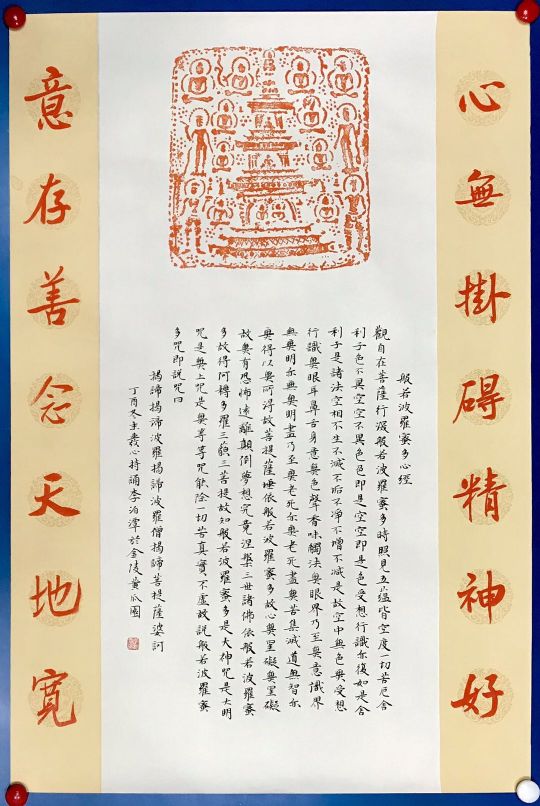 心無掛碍精神好
般若波羅蜜多心經
觀自在菩薩行深般若波羅蜜多時照見五蘊皆空度一切苦厄舍
利子色不異空空不異色色即是空空即是色受想行識亦復如是舍
利子是諸法空相不生不滅不垢不淨不增不減是故空中無色無受想
行識無眼耳鼻舌身意無色聲香味觸法無眼界乃至無意識界
無無明亦無無明盡乃至無老死亦無老死盡無苦集滅道無智亦
無得以無所得故菩提薩埵依般若波羅蜜多故心無罣礙無罣礙
故無有恐怖遠離顛倒夢想究竟涅槃三世諸佛依般若波羅蜜
多故得阿耨多羅三藐三菩提故知般若波羅蜜多是大神咒是大明
咒是無上咒是無等等咒能除一切苦真實不虛故說般若波羅蜜
多咒即說咒曰
揭諦揭諦波羅揭諦波羅僧揭諦菩提薩婆訶
丁酉冬心持誦李泊潭於金陵黃瓜園
意存善念天地寬